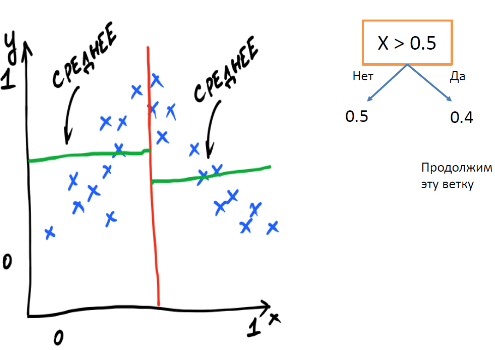 y
1
СРЕДНЕЕ
СРЕДНЕЕ
0
0
1 x
X > 0.5
Нет
Да
0.5
0.4
Продолжим
эту ветку